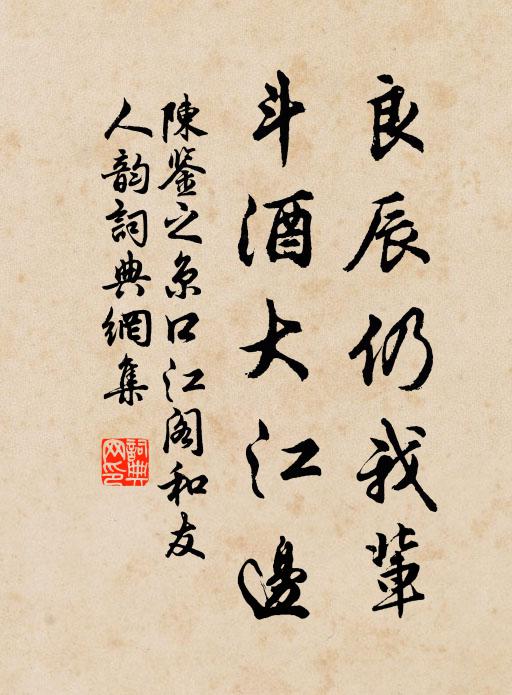 良辰仍我輩
斗酒大江邊
陳鉴之京口江阁和友
人韵詞典網集
詞典网印